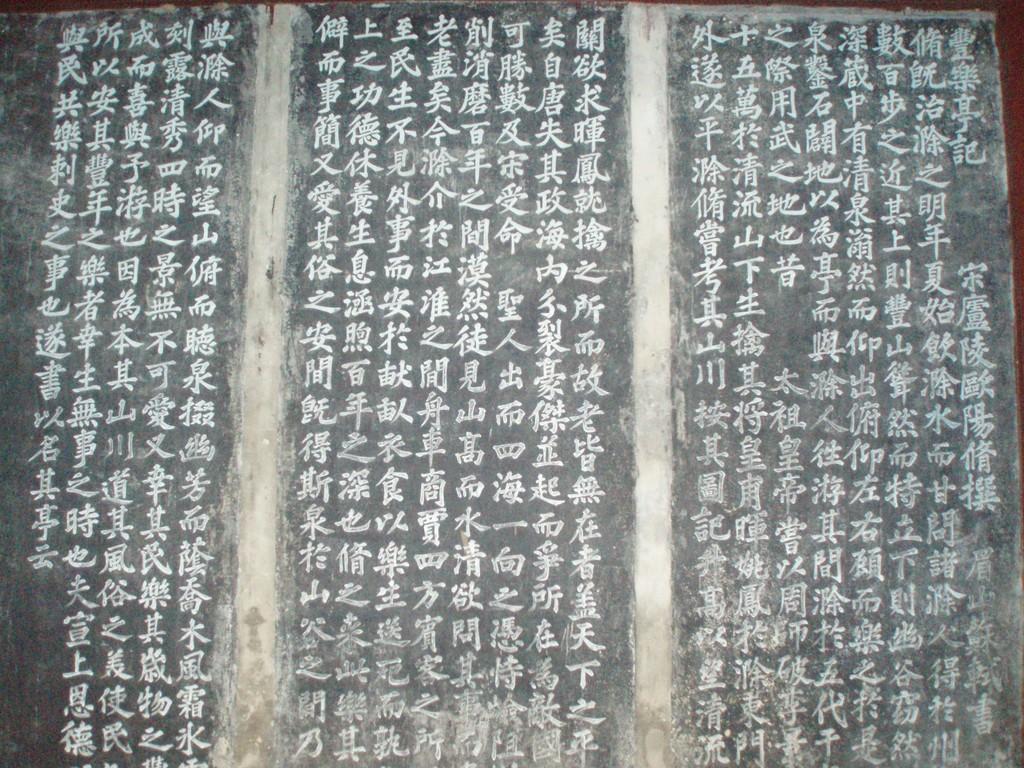 豐樂亭記
宋廬陵歐陽脩撰 眉山蘇軾書
脩既治滁之明年夏始飲滁水而甘問諸滁人得於州
數百步之近其上則豐山聳然而特立下則幽谷窈然
深蔵中有清泉滃然而仰出俯仰左右顧而樂之於是
泉鑿石闢地以為亭而與滁人往游其間滁於五代干
之際用武之地也昔 太祖皇帝嘗以周師破李景
十五萬於清流山下生擒其将皇甫暉姚鳳於滁東門
外遂以平滁脩嘗考其山川按其圖記升高以望清流
關欲求暉鳳就擒之所而故老皆無在者盖天下之平
矣自唐失其政海內分裂豪傑並起而爭所在為敵國
可勝數及宋受命 聖人出而四海一向之憑恃險阻
削消磨百年之間漠然徒見山高而水清欲問其事而
老盡矣今滁介於江淮之間舟車商賈四方賓客之所
至民生不見外事而安於畎畝衣食以樂生送死而孰
上之功德休養生息涵煦百年之深也脩之來此樂其
僻而事簡又愛其俗之安閒既得斯泉於山谷之間乃
與滁人仰而望山俯而聽泉掇幽芳而蔭喬木風霜氷雪
刻露清秀四時之景無不可愛又幸其民樂其歲物之豐
成而喜與予游也因為本其山川道其風俗之美使民
所以安其豐年之樂者幸生無事之時也夫宣上恩德
與民共樂刺史之事也遂書以名其亭云